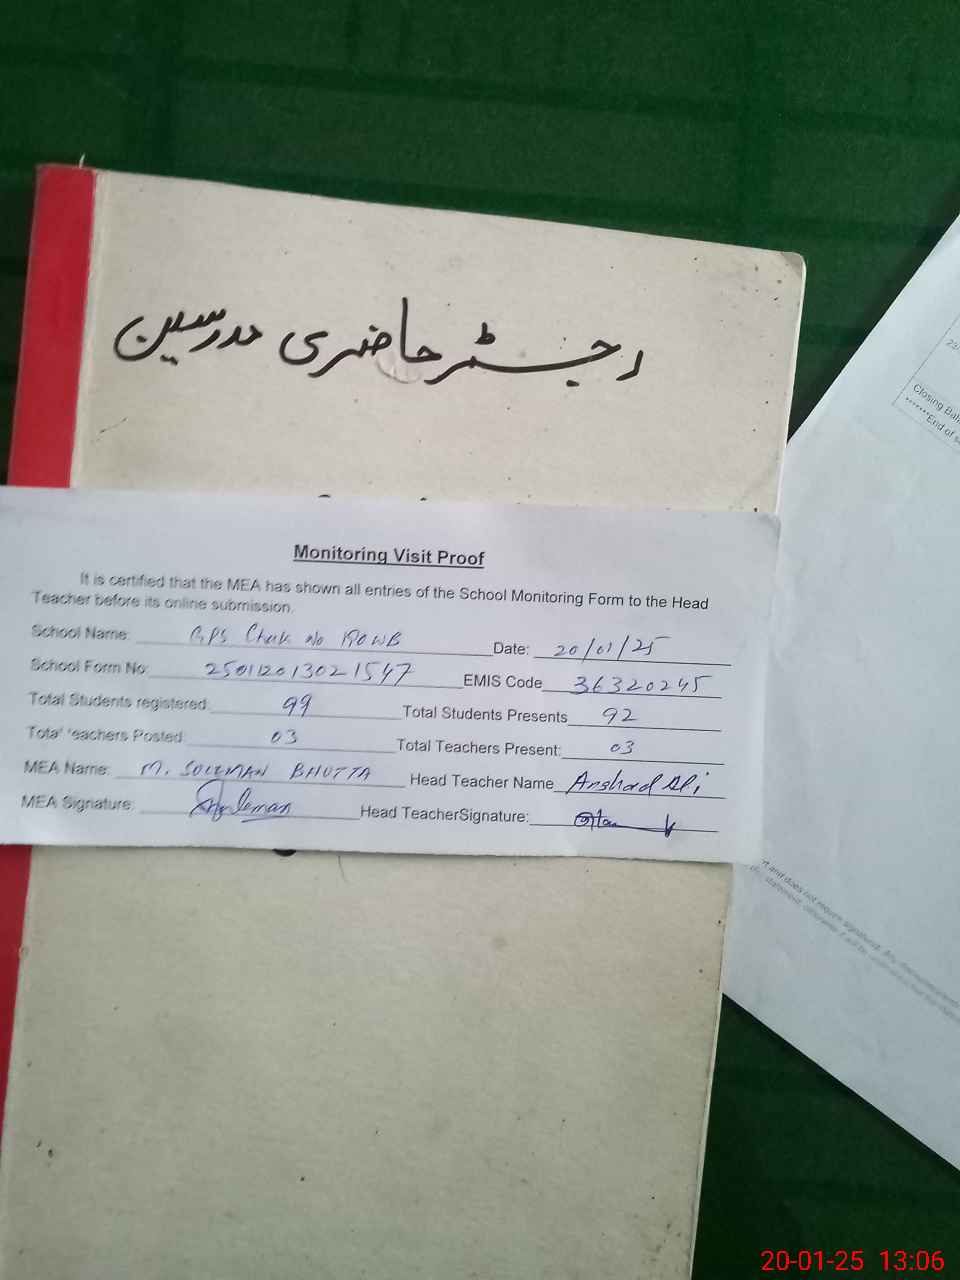 رجسٹر حاضری مدرسین
Monitoring Visit Proof
It is certified that the MEA has shown all entries of the School Monitoring Form to the Head
Teacher before its online submission.
School Name: GPS Chak No WB Date: 20/01/25
School Form No: EMIS Code 36320245
Total Students registered: 99 Total Students Presents 92
Total Teachers Posted: 03 Total Teachers Present: 03
MEA Name: M. SULEMAN BHUTTA Head Teacher Name Arshad Ali
MEA Signature: Suleman Head TeacherSignature:
Closing Bal
*******End of s
and does not require signature. Any
20-01-25 13:06